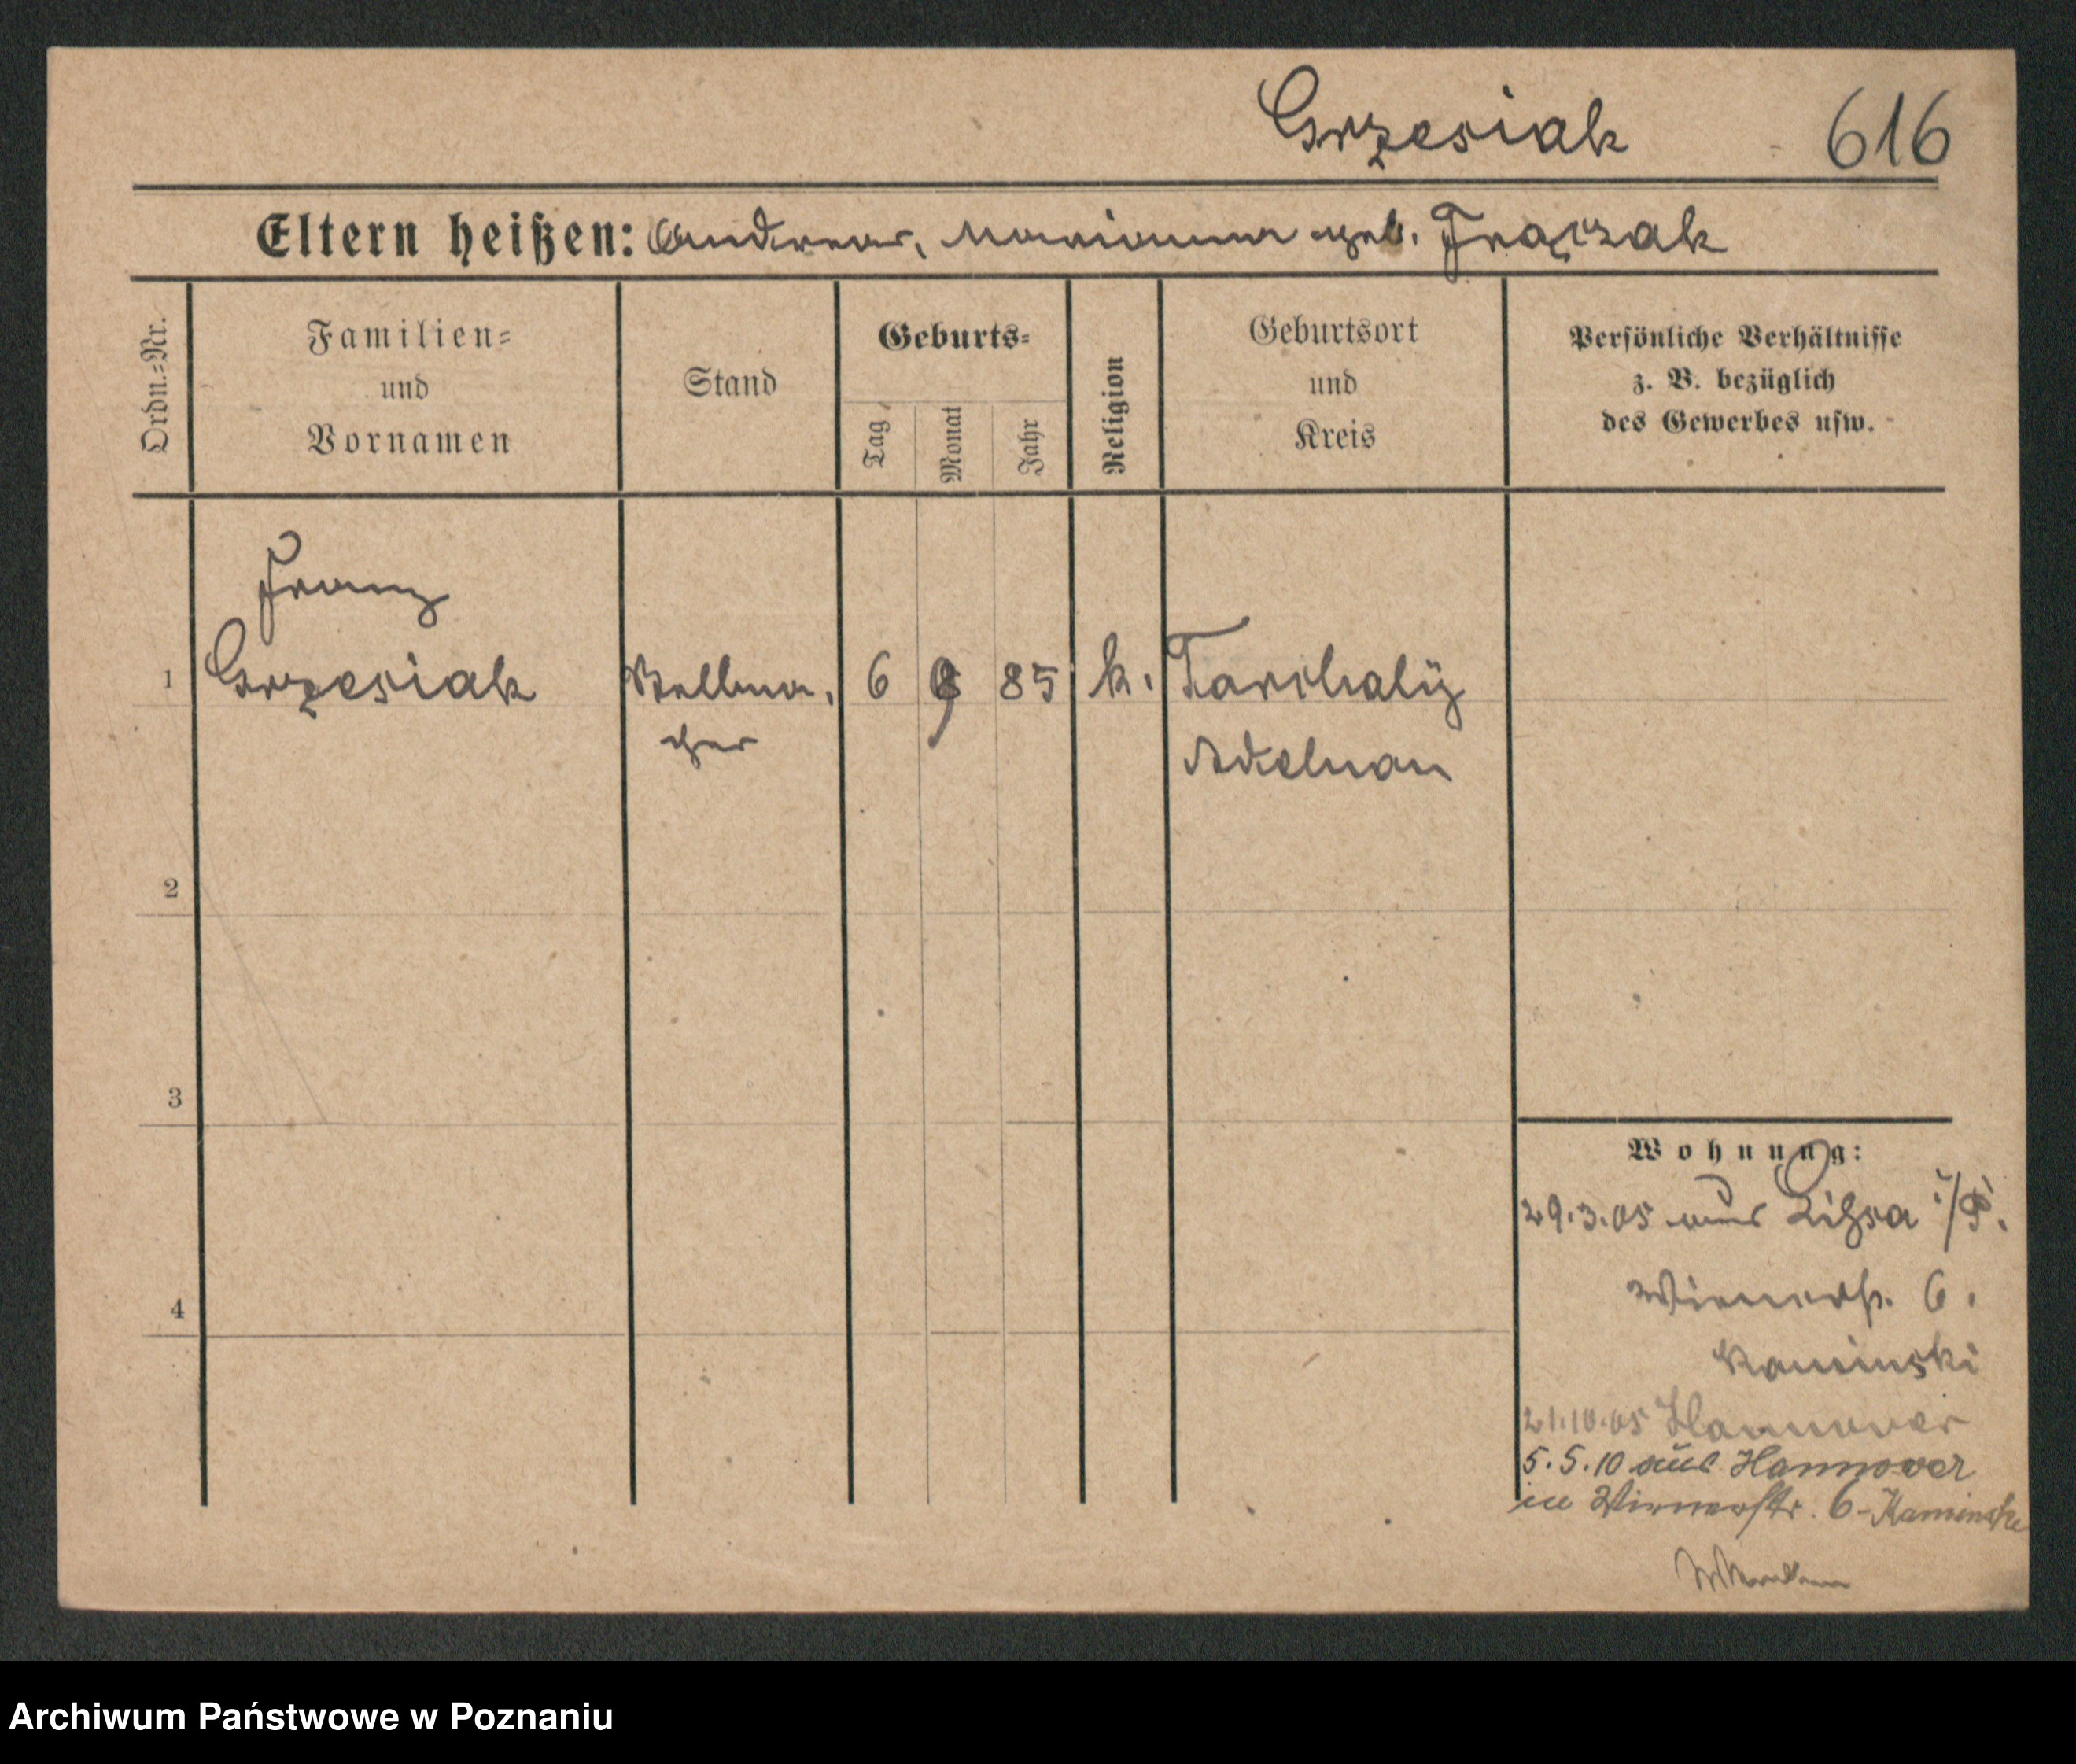 Grzesiak 616
Eltern heißen: Andreas, Marianna geb. Frączak
Ordn.=Nr.
Familien=
und
Vornamen
Stand
Geburts=
Tag
Monat
Jahr
Religion
Geburtsort
und
Kreis
Persönliche Verhältnisse
z. B. bezüglich
des Gewerbes usw.
Franz
1 Grzesiak Stellma. 6 9 85 k. Tarchaly
cher Adelnau
2
3
4
Wohnung:
29.3.05 aus Lissa i/P.
Wienerstr. 6.
Kaminski
21.10.05 Hannover
5.5.10 aus Hannover
in Wienerstr. 6 - Kaminski
Archiwum Państwowe w Poznaniu